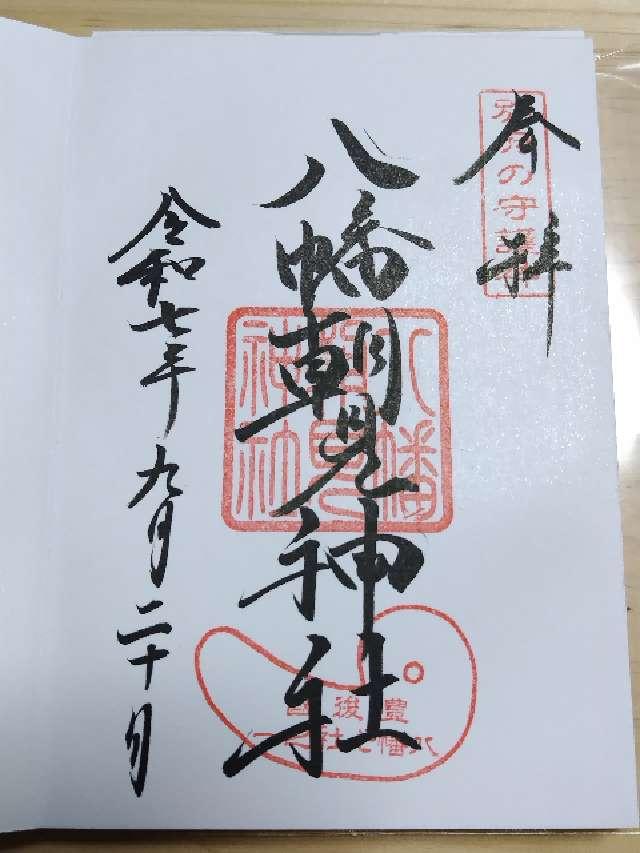 奉拝
別府の守護神
八幡朝見神社
八幡朝見神社
豊後国
令和七年九月二十日